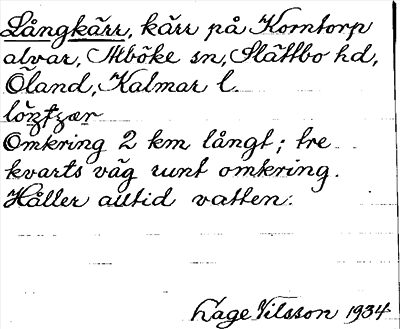 Långkärr, kärr på Korntorp
alvar, Alböke sn, Slättbo hd,
Öland, Kalmar l.
Omkring 2 km långt; tre
kvarts väg runt omkring.
Håller alltid vatten.
Lage Nilsson 1934